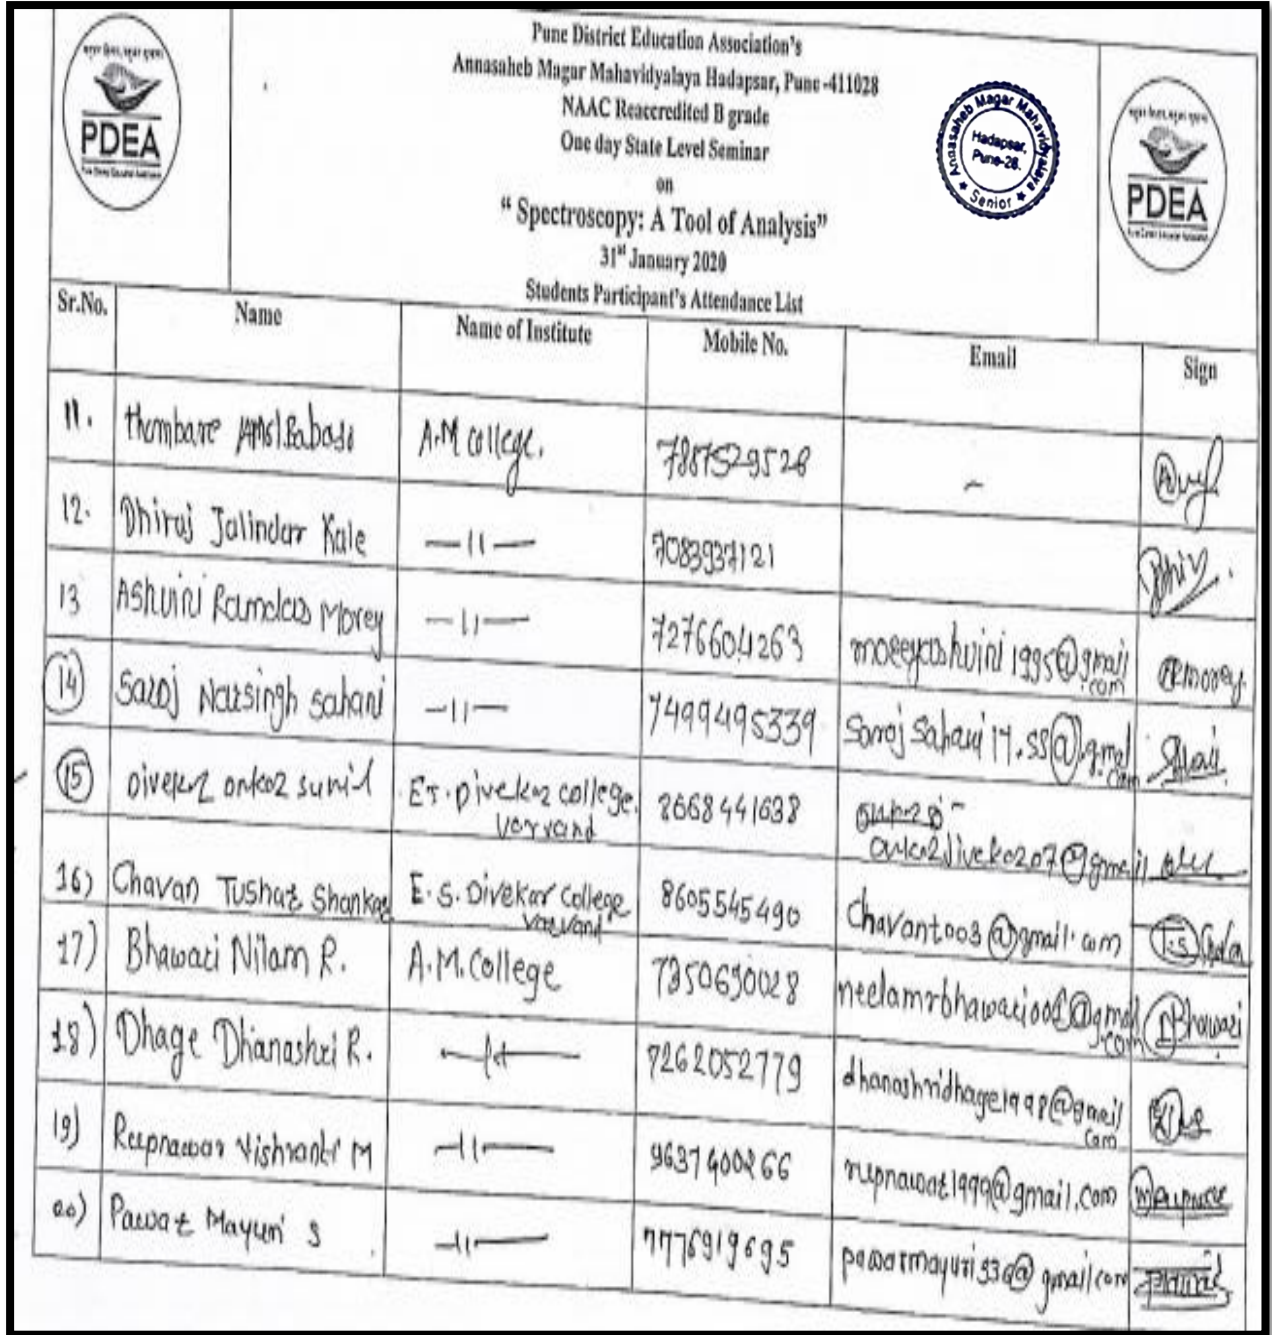 PDEA
Pune District Education Association's
Annasaheb Magar Mahavidyalaya Hadapsar, Pune -411028
NAAC Reaccredited B grade
One day State Level Seminar
on
“ Spectroscopy: A Tool of Analysis”
31st January 2020
Students Participant's Attendance List
Annasaheb Magar Mahavidyalaya
Hadapsar,
Pune-28.
★ Senior ★
PDEA
Sr.No. Name Name of Institute Mobile No. Email Sign
11. Thombare Babaso A.M college. 7887529528 -
12. Dhiraj Jalindar Kale —11— 7083937121
13 Ashvini Ramdas Morey —11— 7276604263 moreyashvini1995@gmail
.com
14 Saroj Narsingh Sahani —11— 7499495339 sarojsahani17.ss@gmal
.com
15 Divekar onkar sunil E.S. Divekar college. 8668441638
Varvand onkardivekar07@gmail
16) Chavan Tushar Shankar E.S. Divekar College 8605545490 chavant003@gmail.com
Varvand
17) Bhawari Nilam R. A.M.College 7350690028 neelamrbhawari001@gmal
.com Bhawari
18) Dhage Dhanashri R. —11— 7262052779 dhanashridhage1998@gmail
com
19) Rupnawar Vishranti M —11— 9637400266 rupnawar1999@gmail.com
20) Pawar Mayuri S —11— 7776919695 pawarmayuri536@gmail.com